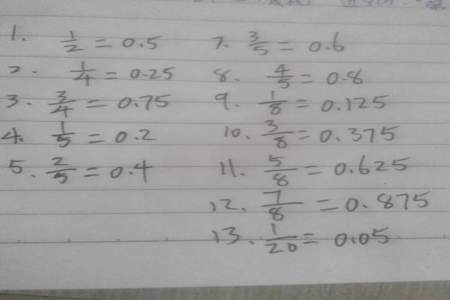 1. 1/2 = 0.5
2. 1/4 = 0.25
3. 3/4 = 0.75
4. 1/5 = 0.2
5. 2/5 = 0.4
7. 3/5 = 0.6
8. 4/5 = 0.8
9. 1/8 = 0.125
10. 3/8 = 0.375
11. 5/8 = 0.625
12. 7/8 = 0.875
13. 1/20 = 0.05